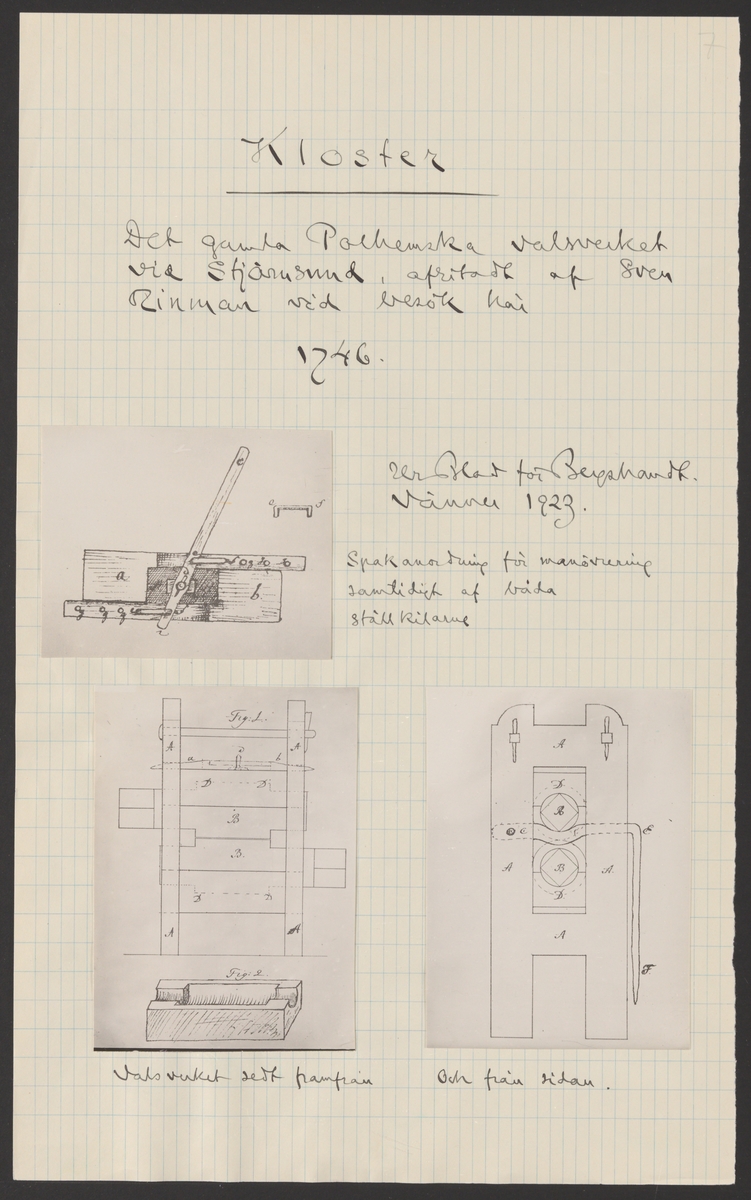 7
Kloster
Det gamla Polhemska valsverket
vid Stjärnsund, afritadt af Sven
Rinman vid besök här
1746.
Ur Blad för Bergshandt.
Vänner 1923.
Spakanordning för manövrering
samtidigt af båda
ställkilarne
a
b
Fig. 1.
A A
a b
D D
B
B.
D D
A A
Fig. 2.
A
D.
B
C E
B
A A.
D.
A
F.
Valsverket sedt framfrån
Och från sidan.